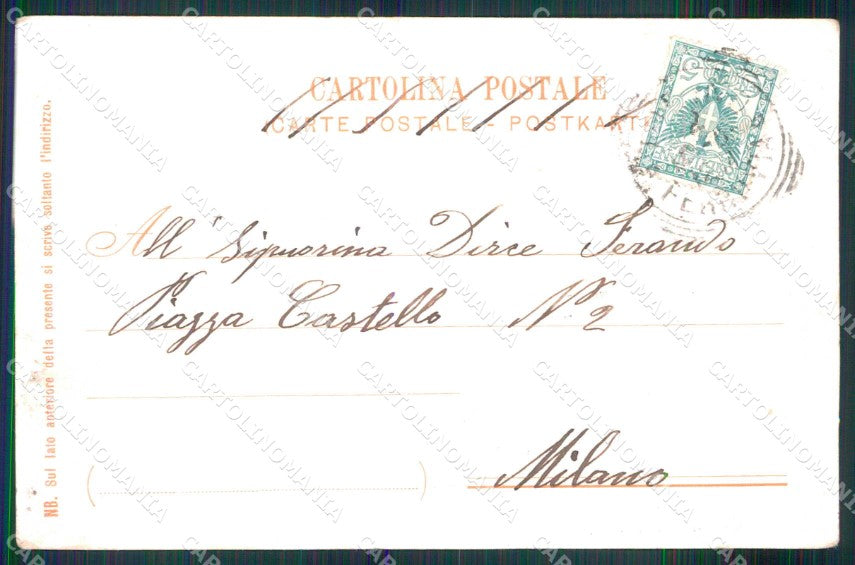 CARTOLINA POSTALE
CARTE POSTALE - POSTKARTE
All' Signorina Dirce Ferando
Piazza Castello N° 2
Milano
NB. Sul lato anteriore della presente si scrive soltanto l'indirizzo.
CARTOLINOMANIA